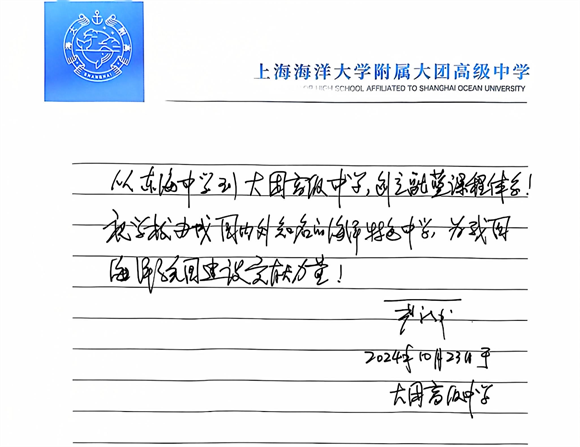 海大附高
SHANGHAI
上海海洋大学附属大团高级中学
HIGH SCHOOL AFFILIATED TO SHANGHAI OCEAN UNIVERSITY
从东海中学到大团高级中学,创立融蓝课程体系!
祝学校办成国内外知名的海洋特色中学,为我国
海洋强国建设贡献力量!
2024年10月23日于
大团高级中学